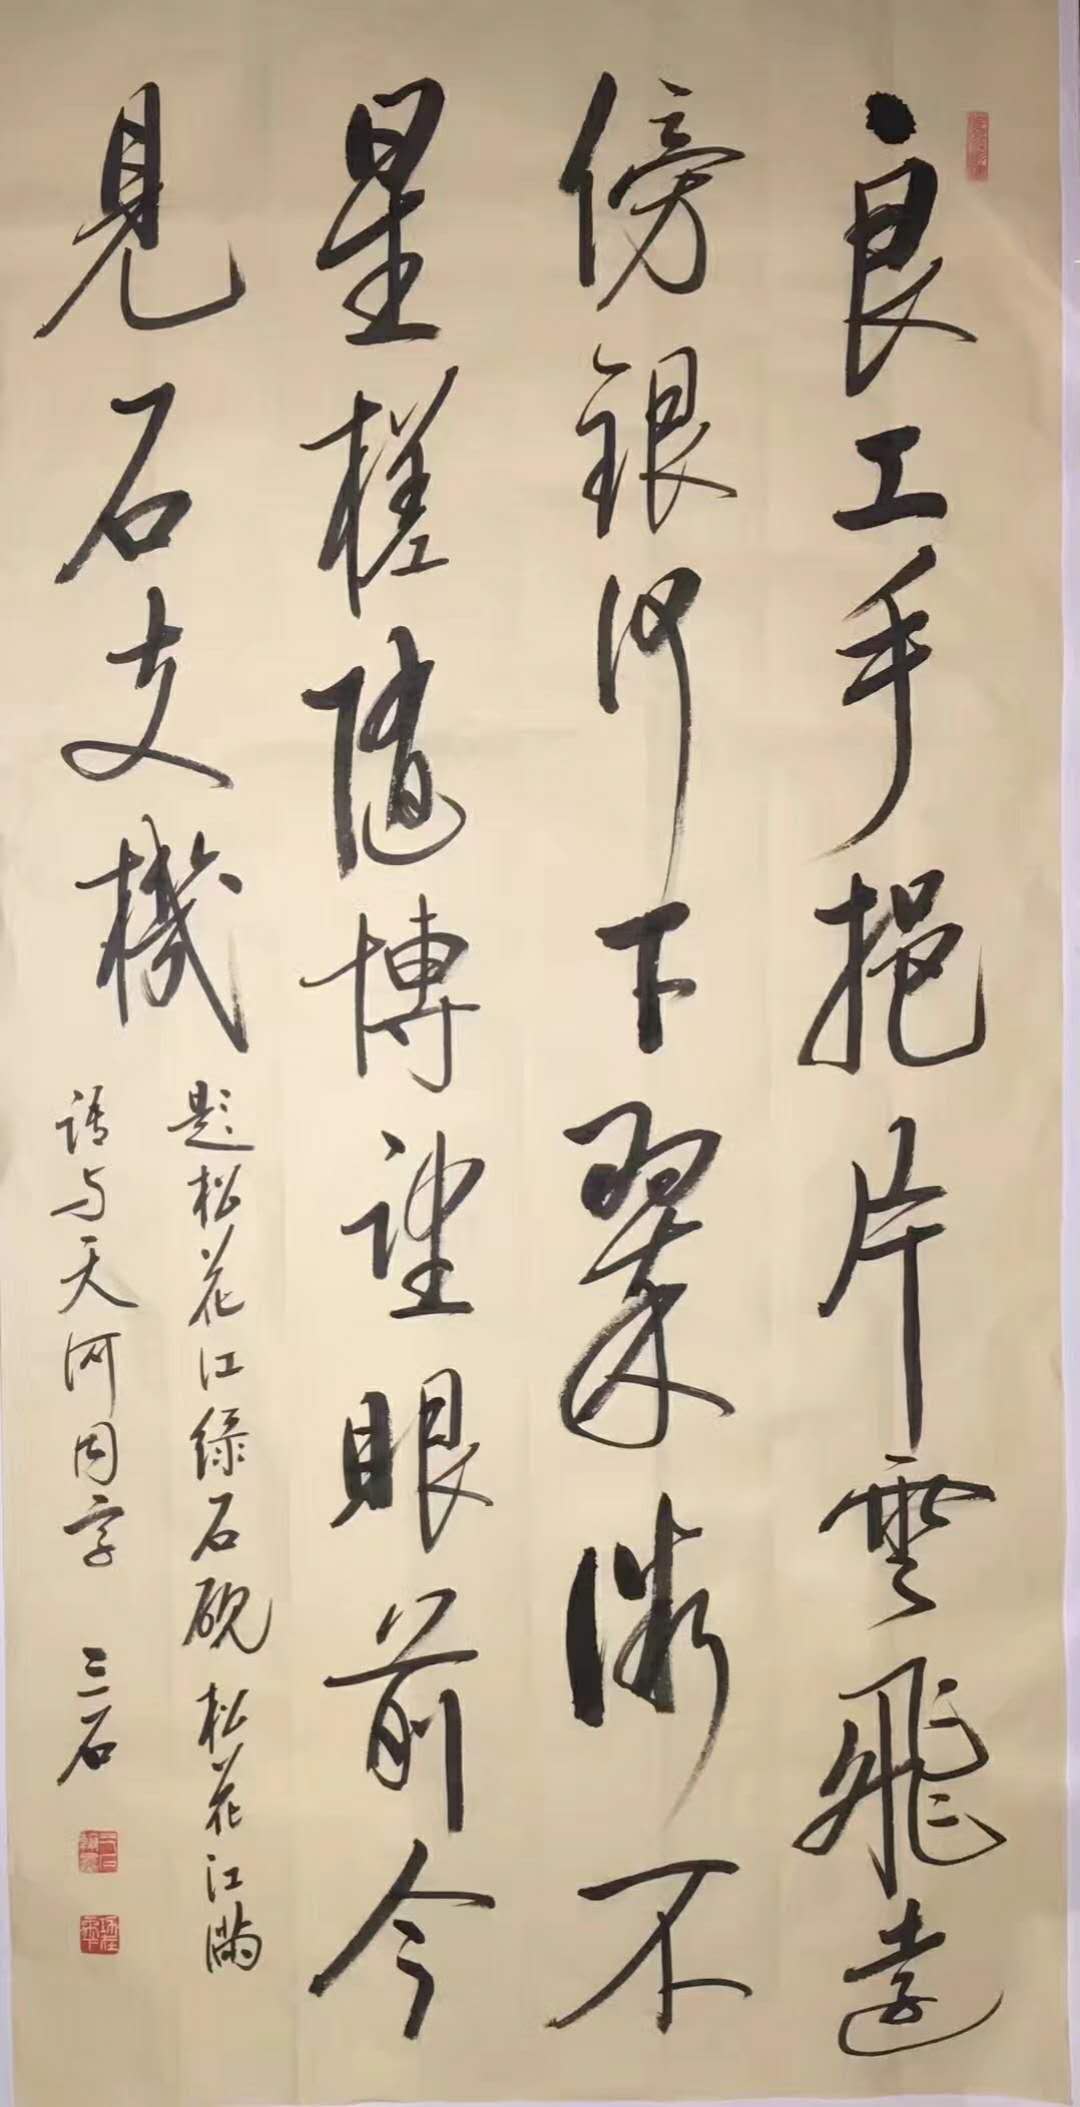 良工手挹片雲飛遠
傍銀河下翠微不
星槎随博望眼前今
見石支機
题松花江绿石砚 松花江满
语与天河同字 三石